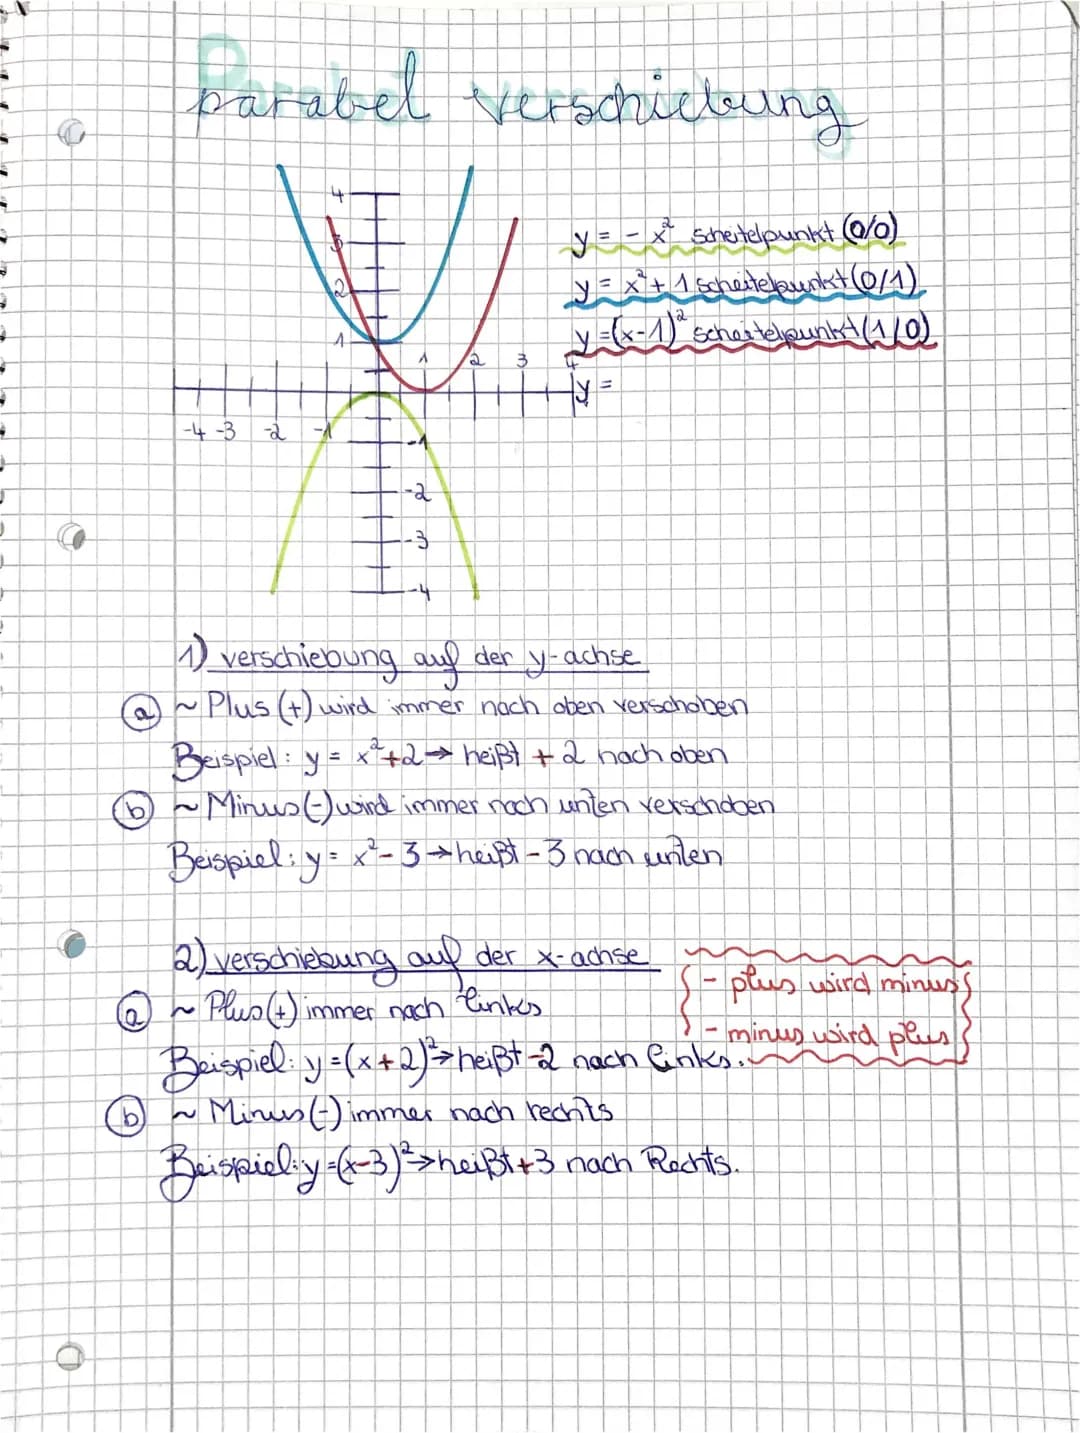 parabel verschiebung
4
3
2
1
1 2 3 4
-4 -3 -2 -1
-1
-2
-3
-4
y = - x² scheitelpunkt (0/0)
y = x² + 1 scheitelpunkt (0/1)
y = (x-1)² scheitelpunkt (1/0)
y =
1) verschiebung auf der y-achse
a ~ Plus (+) wird immer nach oben verschoben
Beispiel : y = x²+2 → heißt + 2 nach oben
b ~ Minus (-) wird immer nach unten verschoben
Beispiel : y = x² - 3 → heißt - 3 nach unten
2) verschiebung auf der x-achse
- plus wird minus
- minus wird plus
a ~ Plus (+) immer nach links
Beispiel: y = (x+2)² → heißt -2 nach links.
b ~ Minus (-) immer nach rechts
Beispiel: y = (x-3)² → heißt +3 nach Rechts.